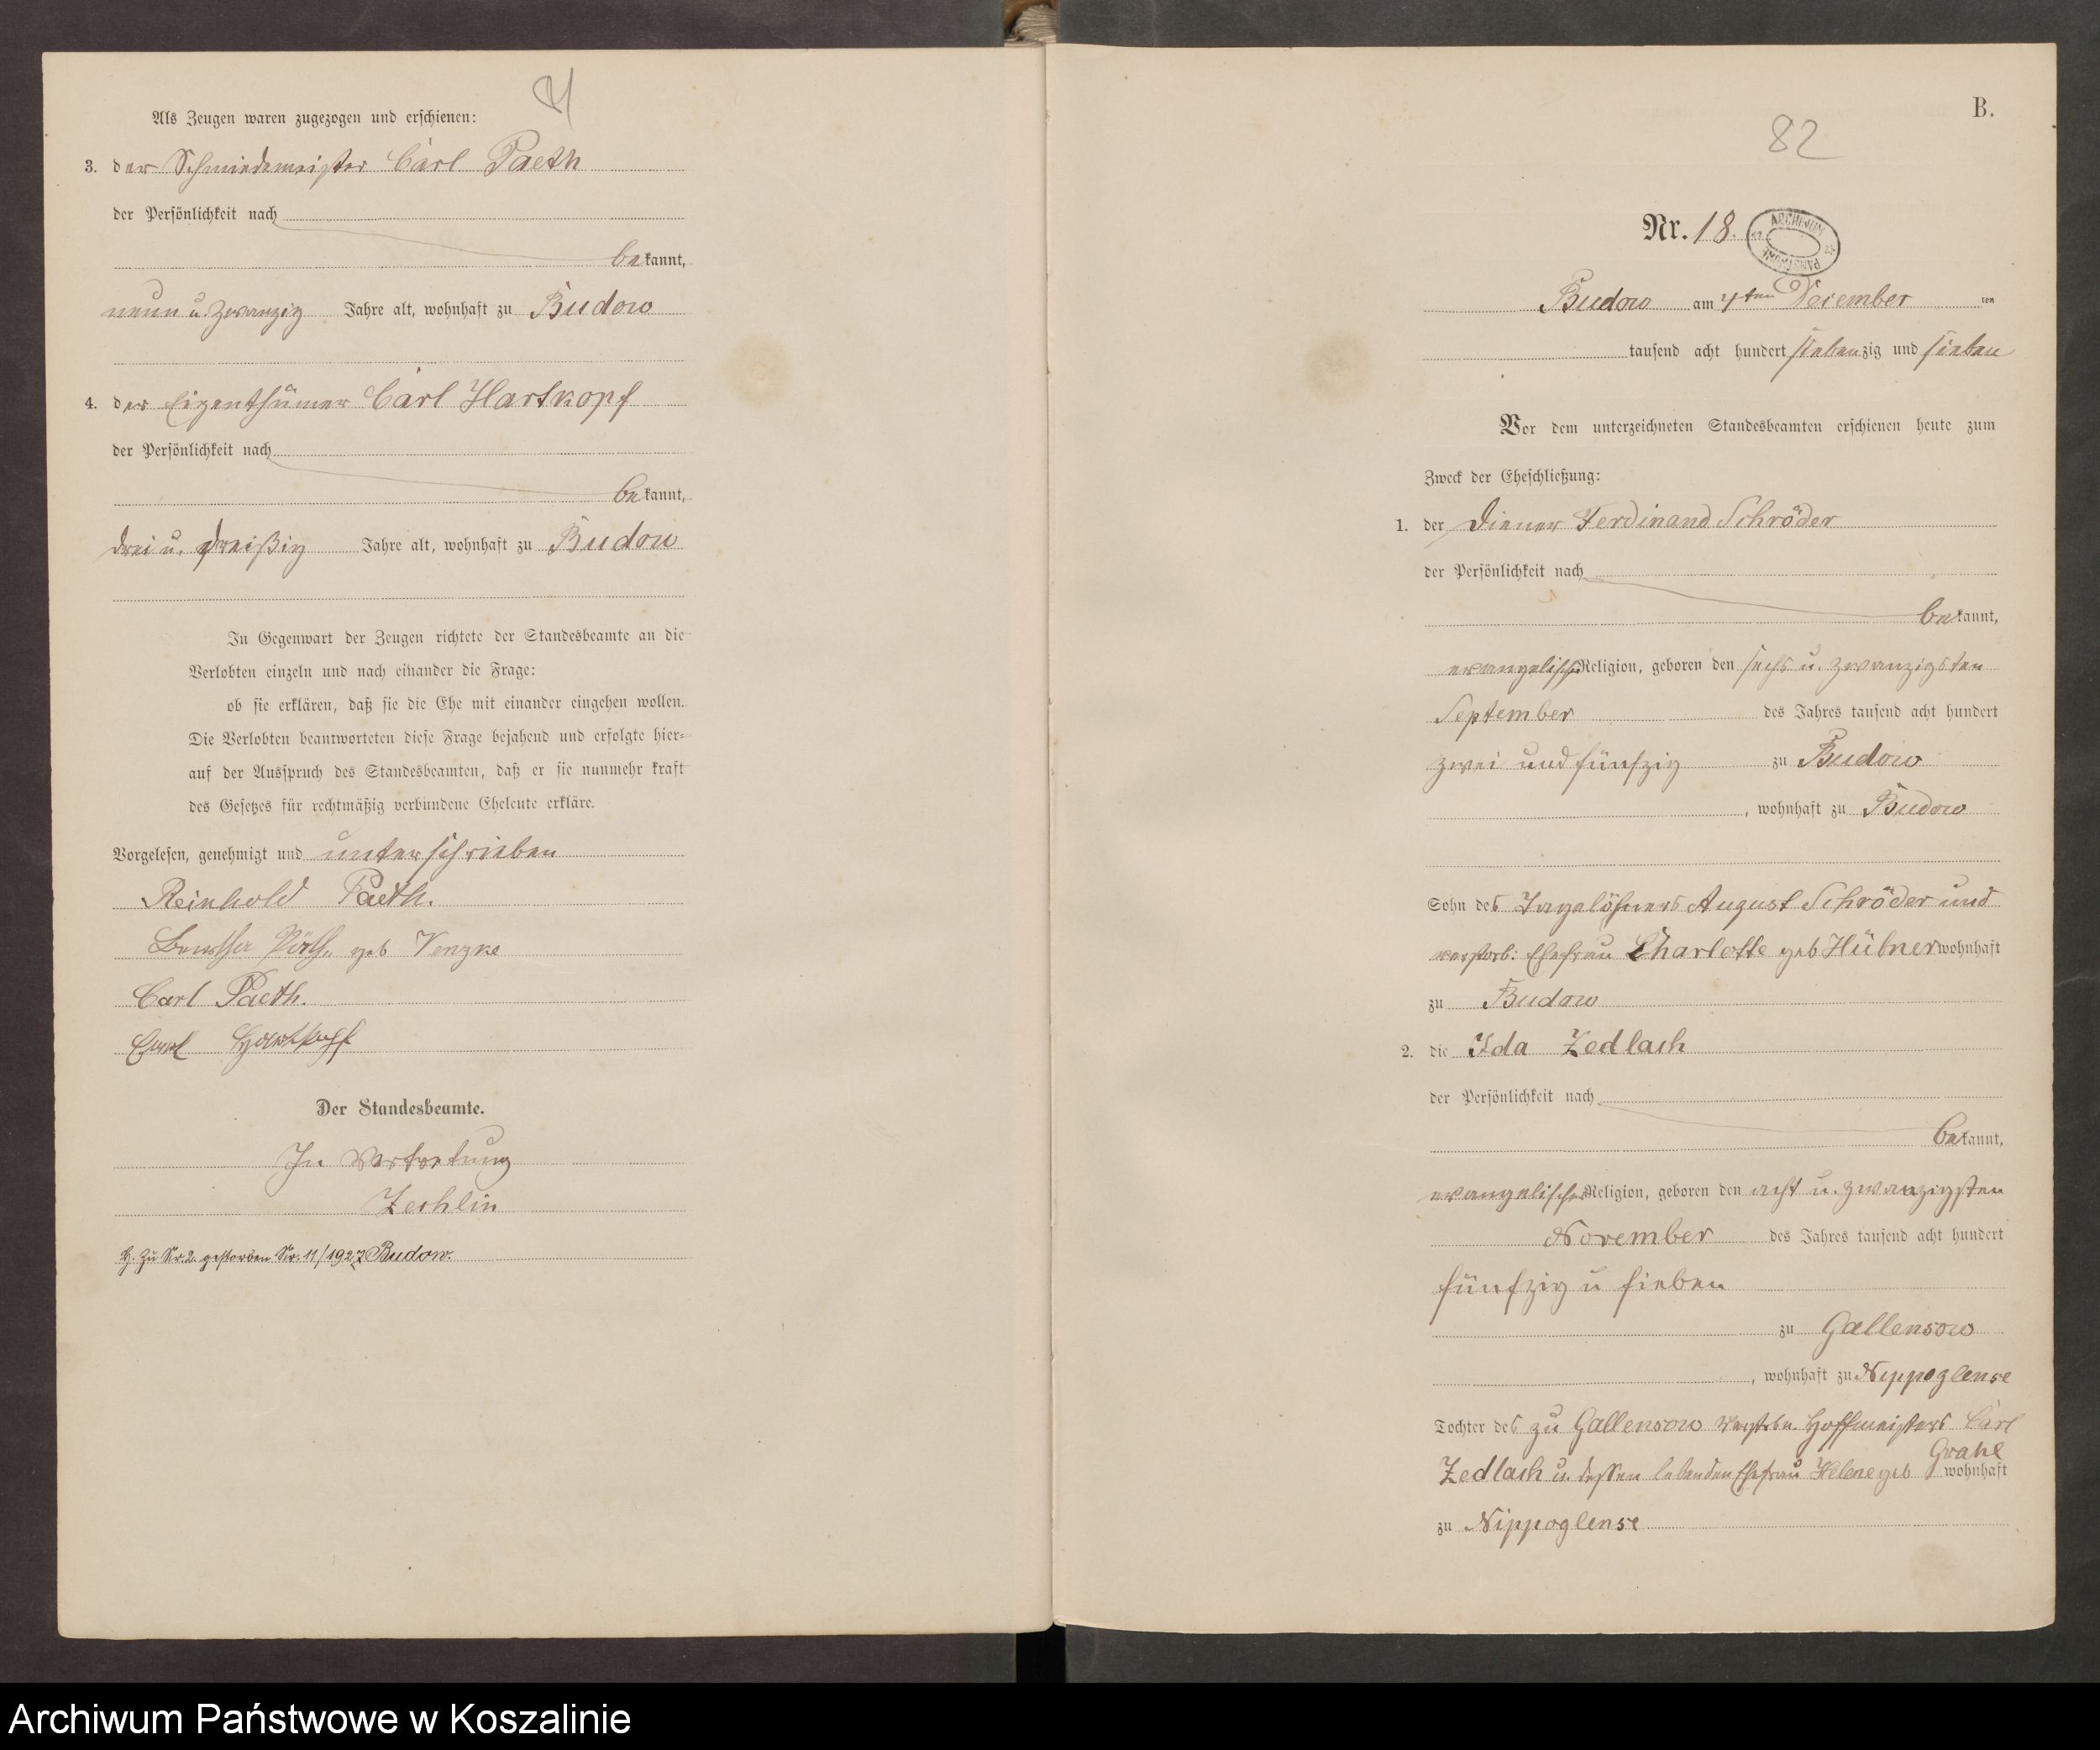 Als Zeugen waren zugezogen und erschienen:
3. der Schmiedemeister Carl Paeth
der Persönlichkeit nach
bekannt,
neun u. zwanzig Jahre alt, wohnhaft zu Budow
4. der Eigenthümer Carl Hartkopf
der Persönlichkeit nach
bekannt,
drei u. dreißig Jahre alt, wohnhaft zu Budow
In Gegenwart der Zeugen richtete der Standesbeamte an die
Verlobten einzeln und nach einander die Frage:
ob sie erklären, daß sie die Ehe mit einander eingehen wollen.
Die Verlobten beantworteten diese Frage bejahend und erfolgte hier-
auf der Ausspruch des Standesbeamten, daß er sie nunmehr kraft
des Gesetzes für rechtmäßig verbundene Eheleute erkläre.
Vorgelesen, genehmigt und unterschrieben
Reinhold Paeth.
Bertha Päth geb Venzke
Carl Paeth.
Carl Hartkopf
Der Standesbeamte.
In Vertretung
Zechlin
H. Zu Nr. 2. gestorben Nr. 11/1927 Budow.
B.
82
Nr. 18.
ARCHIWUM PAŃSTWOWE
Budow am 4ten Dezember ten
tausend acht hundert siebenzig und sieben
Vor dem unterzeichneten Standesbeamten erschienen heute zum
Zweck der Eheschließung:
1. der Diener Ferdinand Schröder
der Persönlichkeit nach
bekannt,
evangelischer Religion, geboren den sechs u. zwanzigsten
September des Jahres tausend acht hundert
zwei und fünfzig zu Budow
, wohnhaft zu Budow
Sohn des Tagelöhners August Schröder und
verstorb: Ehefrau Charlotte geb Hübner wohnhaft
zu Budow
2. die Ida Zedlach
der Persönlichkeit nach
bekannt,
evangelischer Religion, geboren den acht u. zwanzigsten
November des Jahres tausend acht hundert
fünfzig u sieben
zu Gallensow
, wohnhaft zu Nippoglense
Tochter des zu Gallensow verstorbn. Hoffmeisters Carl
Zedlach u. dessen lebenden Ehefrau Helene geb Grahl wohnhaft
zu Nippoglense
Archiwum Państwowe w Koszalinie